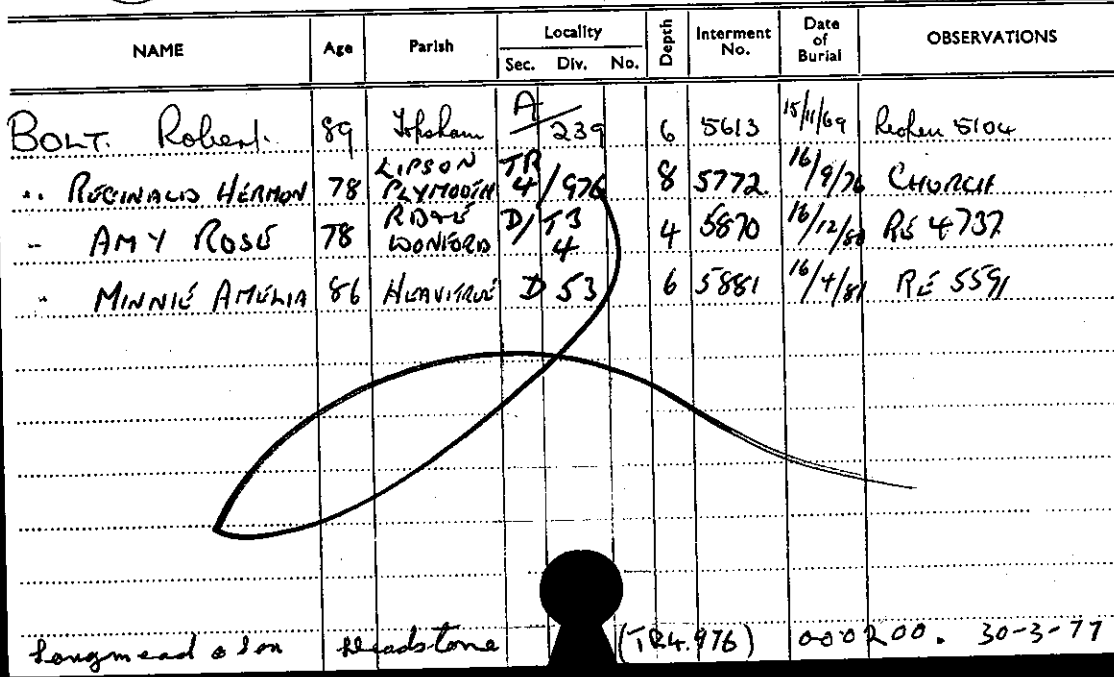 NAME Age Parish Locality Depth Interment No. Date of Burial OBSERVATIONS
Sec. Div. No.
BOLT. Robert. 89 Topsham A/239 6 5613 15/11/69 Reopen 5104
" REGINALD HERMON 78 LIPSON PLYMOUTH TR 4/976 8 5772 16/9/76 CHURCH
" AMY ROSE 78 WONFORD D/T3 4 4 5870 16/12/80 RE 4737
" MINNIE AMELIA 86 HEAVITREE D 53 6 5881 16/4/81 RE 5591
Longmead & Son Headstone (TR4.976) 000200. 30-3-77